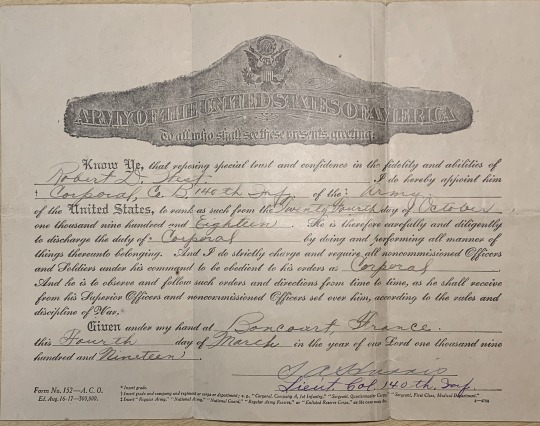 ARMY OF THE UNITED STATES OF AMERICA
To all who shall see these presents, greeting:
Know Ye, that reposing special trust and confidence in the fidelity and abilities of
Robert D. I do hereby appoint him
Corporal, Co. B. 140th Inf of the Army
of the United States, to rank as such from the Twenty fourth day of October
one thousand nine hundred and Eighteen. He is therefore carefully and diligently
to discharge the duty of Corporal by doing and performing all manner of
things thereunto belonging. And I do strictly charge and require all noncommissioned Officers
and Soldiers under his command to be obedient to his orders as Corporal
And he is to observe and follow such orders and directions from time to time, as he shall receive
from his Superior Officers and noncommissioned Officers set over him, according to the rules and
discipline of War.
Given under my hand at Boncourt, France.
this Fourth day of March in the year of our Lord one thousand nine
hundred and Nineteen.
Lieut Col. 140th Inf.
Form No. 152—A. G. O.
Ed. Aug. 16-17—300,000.
* Insert grade.
† Insert grade, company and regiment or corps or department; e. g., "Corporal, Company A, 1st Infantry," "Sergeant, Quartermaster Corps," "Sergeant, First Class, Medical Department."
‡ Insert "Regular Army," "National Army," "National Guard," "Regular Army Reserve," or "Enlisted Reserve Corps," as the case may be.